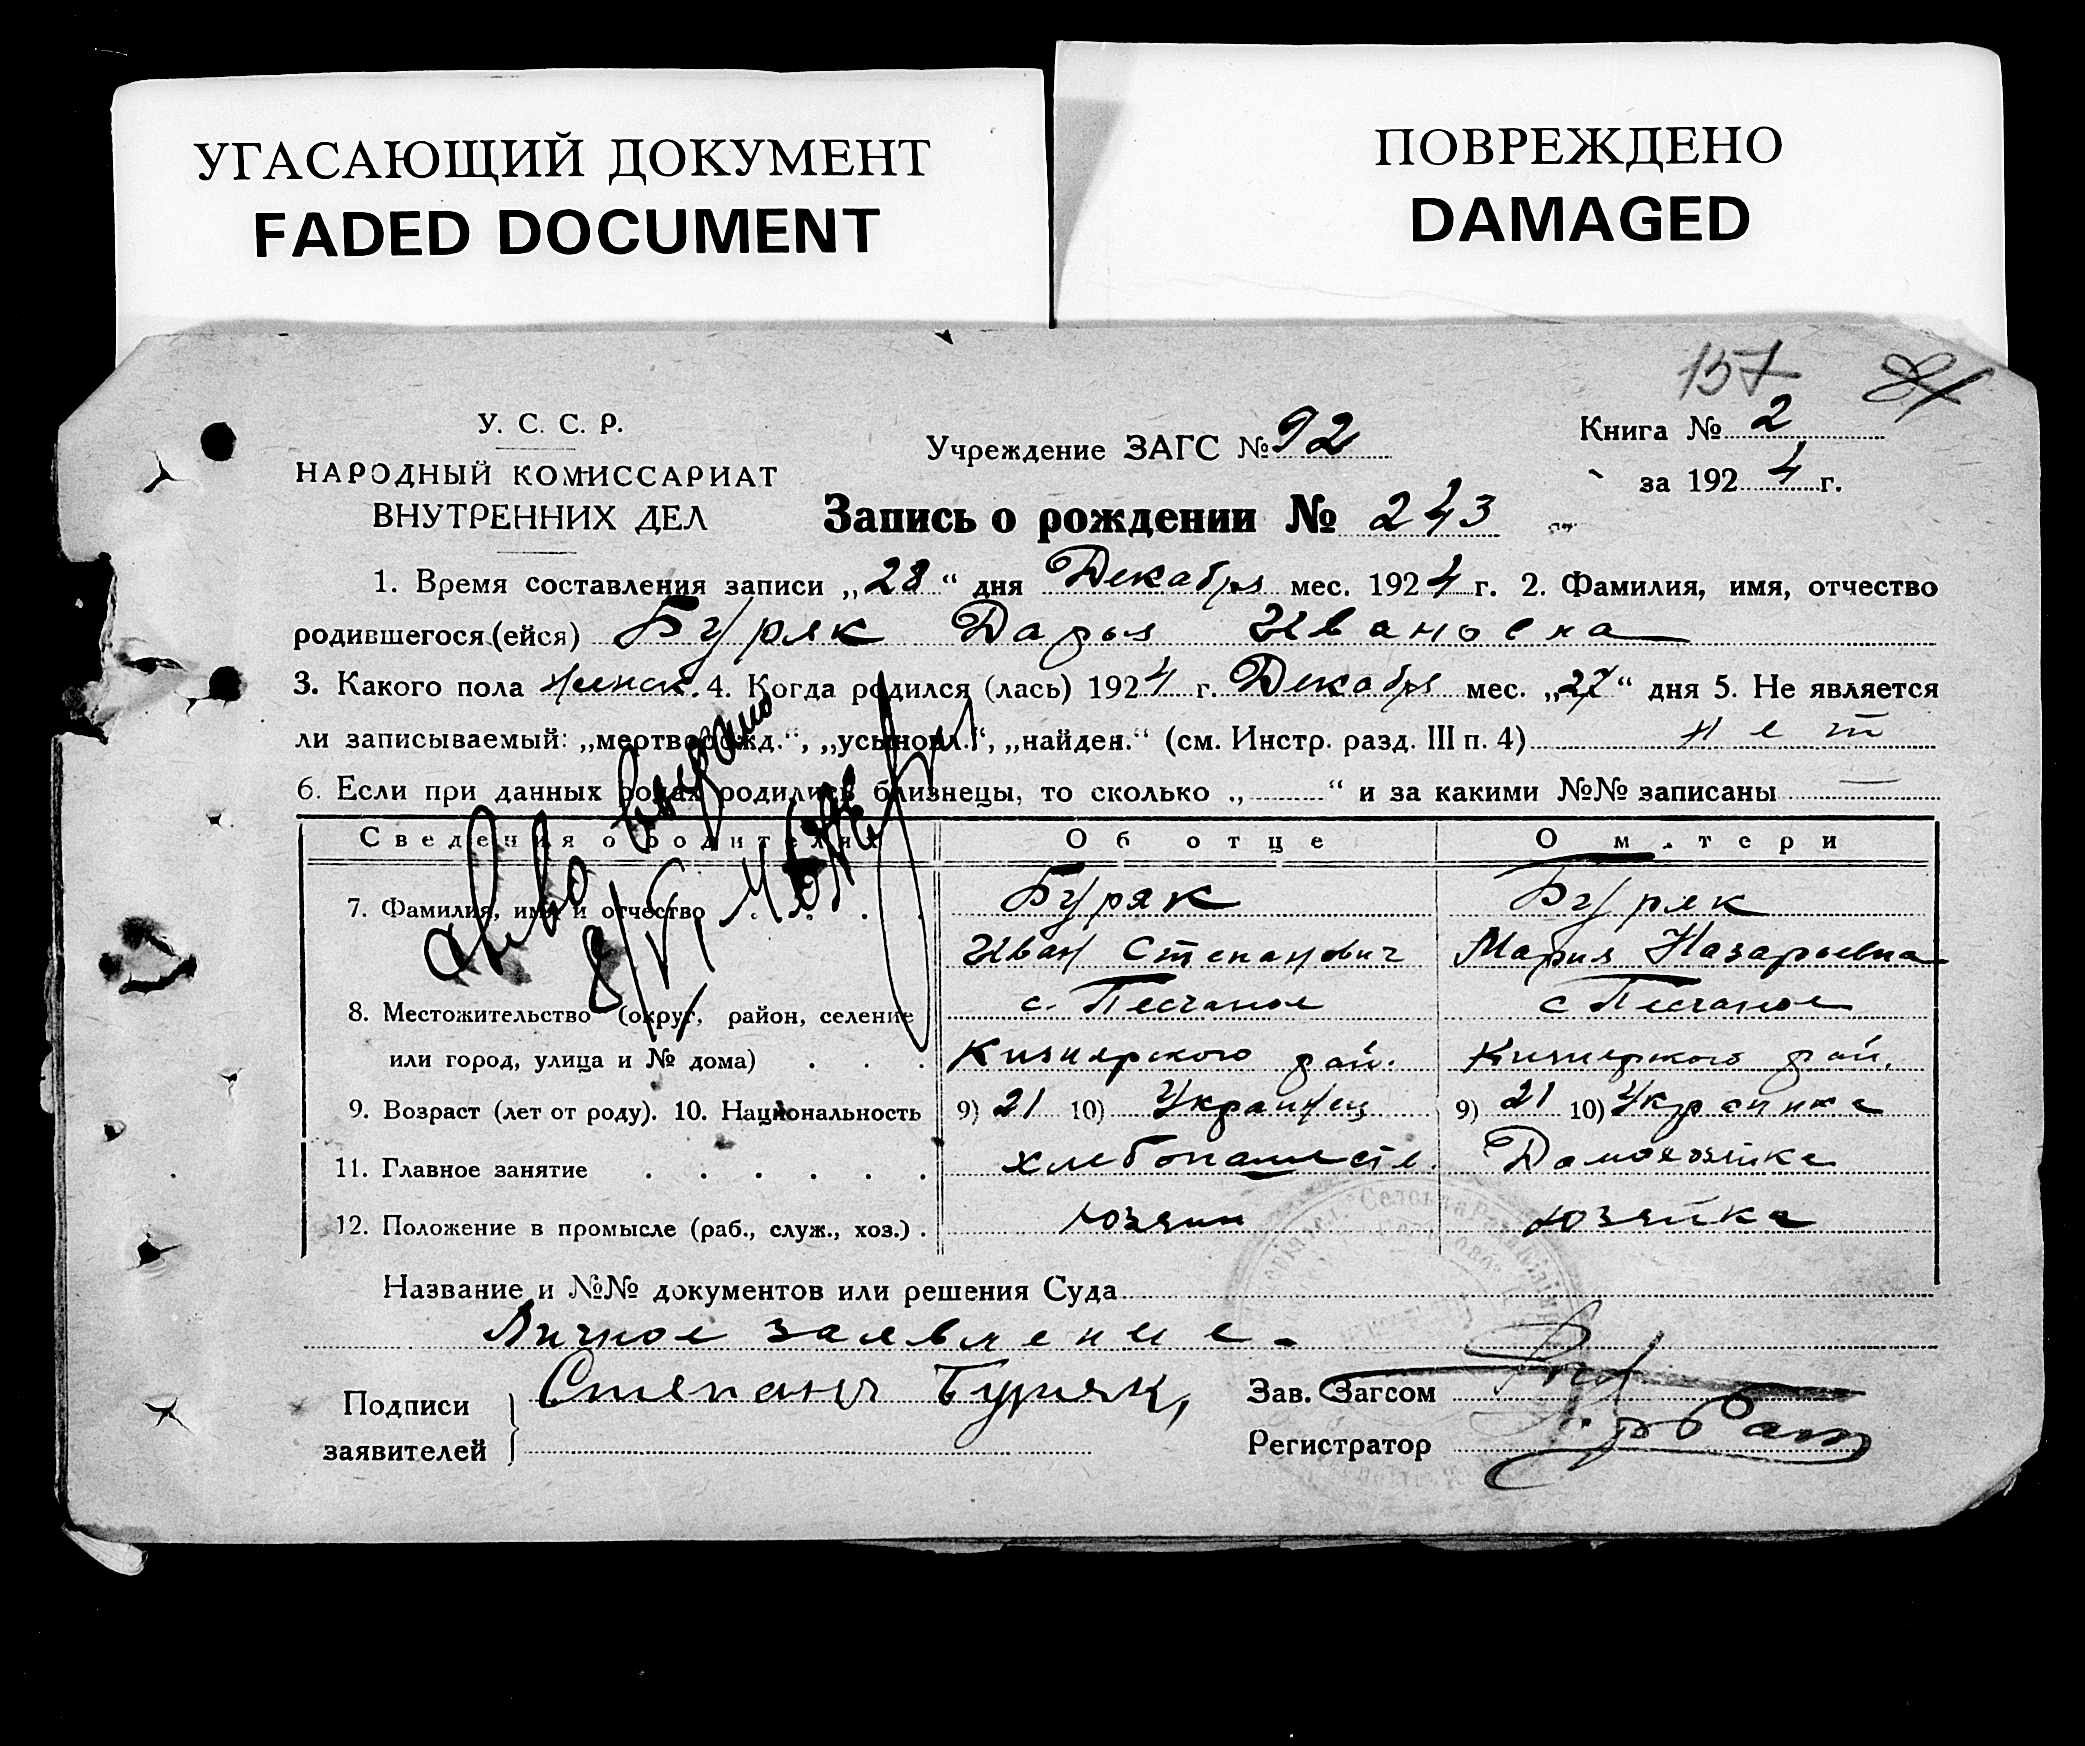 УГАСАЮЩИЙ ДОКУМЕНТ
FADED DOCUMENT
ПОВРЕЖДЕНО
DAMAGED
157
У. С. С. Р.
НАРОДНЫЙ КОМИССАРИАТ
ВНУТРЕННИХ ДЕЛ
Учреждение ЗАГС № 92
Книга № 2
за 1924 г.
Запись о рождении № 243
1. Время составления записи „28“ дня Декабря мес. 1924 г. 2. Фамилия, имя, отчество
родившегося (ейся) Буряк Дарья Ивановна
3. Какого пола женск. 4. Когда родился (лась) 1924 г. Декабря мес. „27“ дня 5. Не является
ли записываемый: „мертворожд.“, „усыновл.“, „найден.“ (см. Инстр. разд. III п. 4) нет
6. Если при данных родах родились близнецы, то сколько „ “ и за какими №№ записаны —
Сведения о родителях Об отце О матери
7. Фамилия, имя и отчество Буряк Буряк
Иван Степанович Мария Назарьевна
8. Местожительство (округ, район, селение с. Песчаное с Песчаное
или город, улица и № дома) Кизиярского рай. Кизиярского рай.
9. Возраст (лет от роду). 10. Национальность 9) 21 10) Украинец 9) 21 10) Украинка
11. Главное занятие хлебопашеств. Домохозяйка
12. Положение в промысле (раб., служ., хоз.) хозяин хозяйка
Название и №№ документов или решения Суда
Личное заявление.
Подписи
заявителей
Буряк,
Зав. Загсом
Регистратор